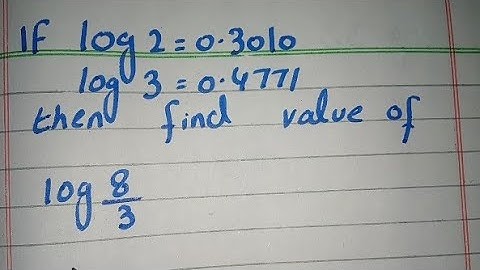 If log 2 = 0.3010
log 3 = 0.4771
then find value of
log 8/3